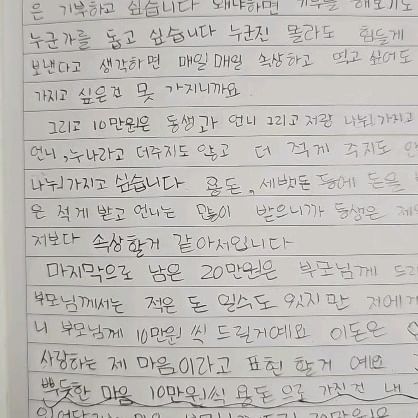 은 기부하고 싶습니다 왜냐하면 기부를 해보기도
누군가를 돕고 싶습니다 누군진 몰라도 힘들게
보낸다고 생각하면 매일매일 속상하고 먹고 싶어도
가지고 싶은건 못 가지니까요
그리고 10만원은 동생과 언니 그리고 저랑 나눠가지고
언니, 누나라고 더주지도 않고 더 적게 주지도
나눠가지고 싶습니다 용돈, 세뱃돈 등에 돈을
은 적게 받고 언니는 많이 받으니까 동생은
저보다 속상할거 같아서입니다
마지막으로 남은 20만원은 부모님께 드
부모님께서는 적은 돈 일수도 있지만 저에게
니 부모님께 10만원 씩 드릴거예요 이돈은
사랑하는 제 마음이라고 표현 할거 예요
뿌듯한 마음 10만원씩 용돈으로 가진건 내